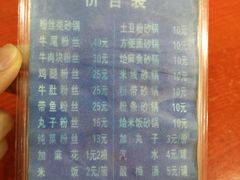 价目表
粉丝类砂锅
牛尾粉丝 40元
牛肉块粉丝 30元
鸡腿粉丝 25元
牛肚粉丝 25元
带鱼粉丝 25元
丸子粉丝 16元
纯菜粉丝 13元
加麻花 1元2根
米饭 2元
土豆粉砂锅 10元
方便面砂锅 10元
烩麻食砂锅 10元
米线砂锅 10元
粉带砂锅 10元
粉条砂锅 10元
烩米饭砂锅 10元
加丸子 3元
汽水 4元
酸梅汤 5元